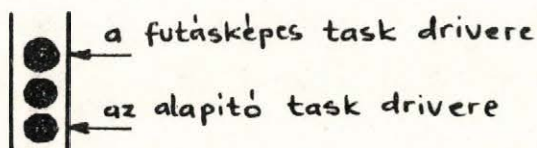 a futásképes task drivere
az alapító task drivere